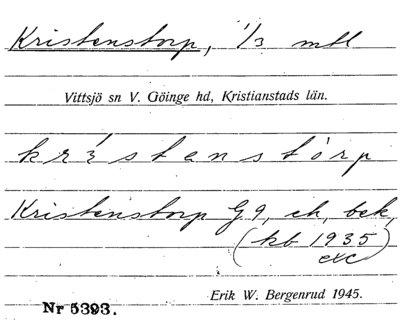 Kristenstorp, 1/3 mtl
Vittsjö sn V. Göinge hd, Kristianstads län.
krɜ́stenstòrp
Kristenstorp G9, ch, bek,
(kb 1935)
exc
Erik W. Bergenrud 1945.
Nr 5393.